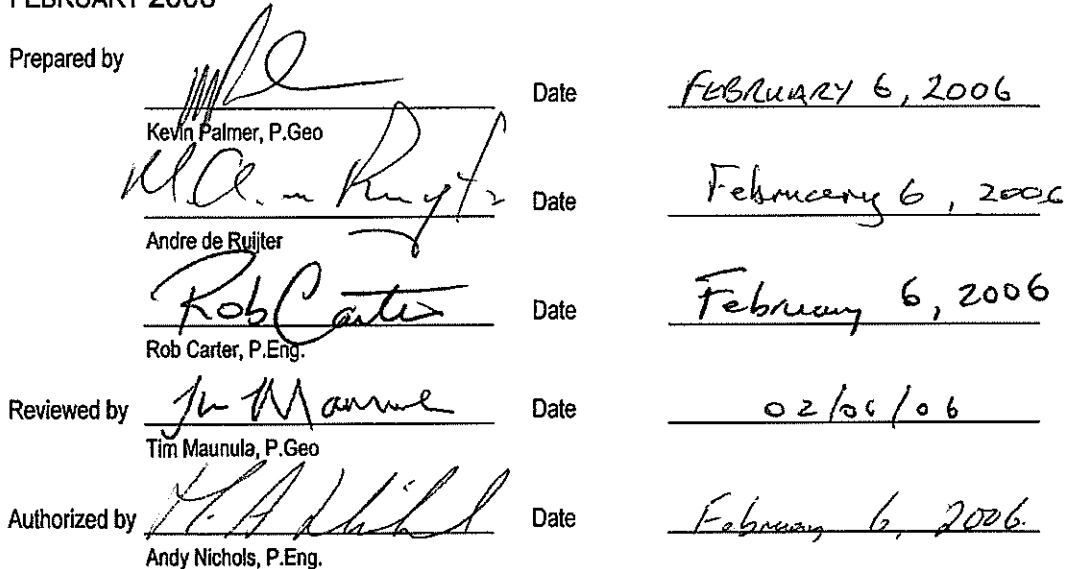 FEBRUARY 2006
Prepared by Date FEBRUARY 6, 2006
Kevin Palmer, P.Geo
Date February 6, 2006
Andre de Ruijter
Rob Carter Date February 6, 2006
Rob Carter, P.Eng.
Reviewed by Date 02/06/06
Tim Maunula, P.Geo
Authorized by Date February 6, 2006.
Andy Nichols, P.Eng.